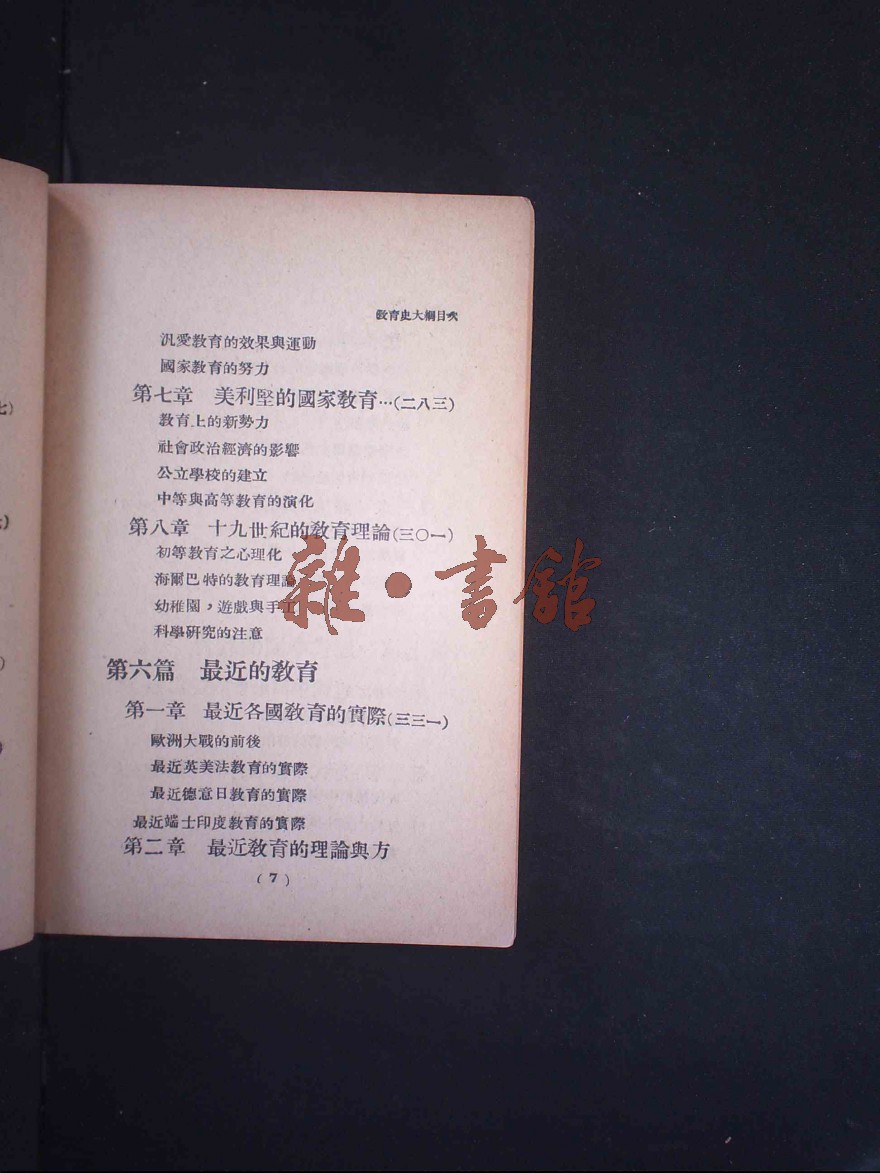 教育史大綱目次
汎愛教育的效果與運動
國家教育的努力
第七章　美利堅的國家教育…(二八三)
教育上的新勢力
社會政治經濟的影響
公立學校的建立
中等與高等教育的演化
第八章　十九世紀的教育理論(三〇一)
初等教育之心理化
海爾巴特的教育理論
幼稚園，遊戲與手工
科學研究的注意
雜·書館
第六篇　最近的教育
第一章　最近各國教育的實際(三三一)
歐洲大戰的前後
最近英美法教育的實際
最近德意日教育的實際
最近端士印度教育的實際
第二章　最近教育的理論與方
(7)